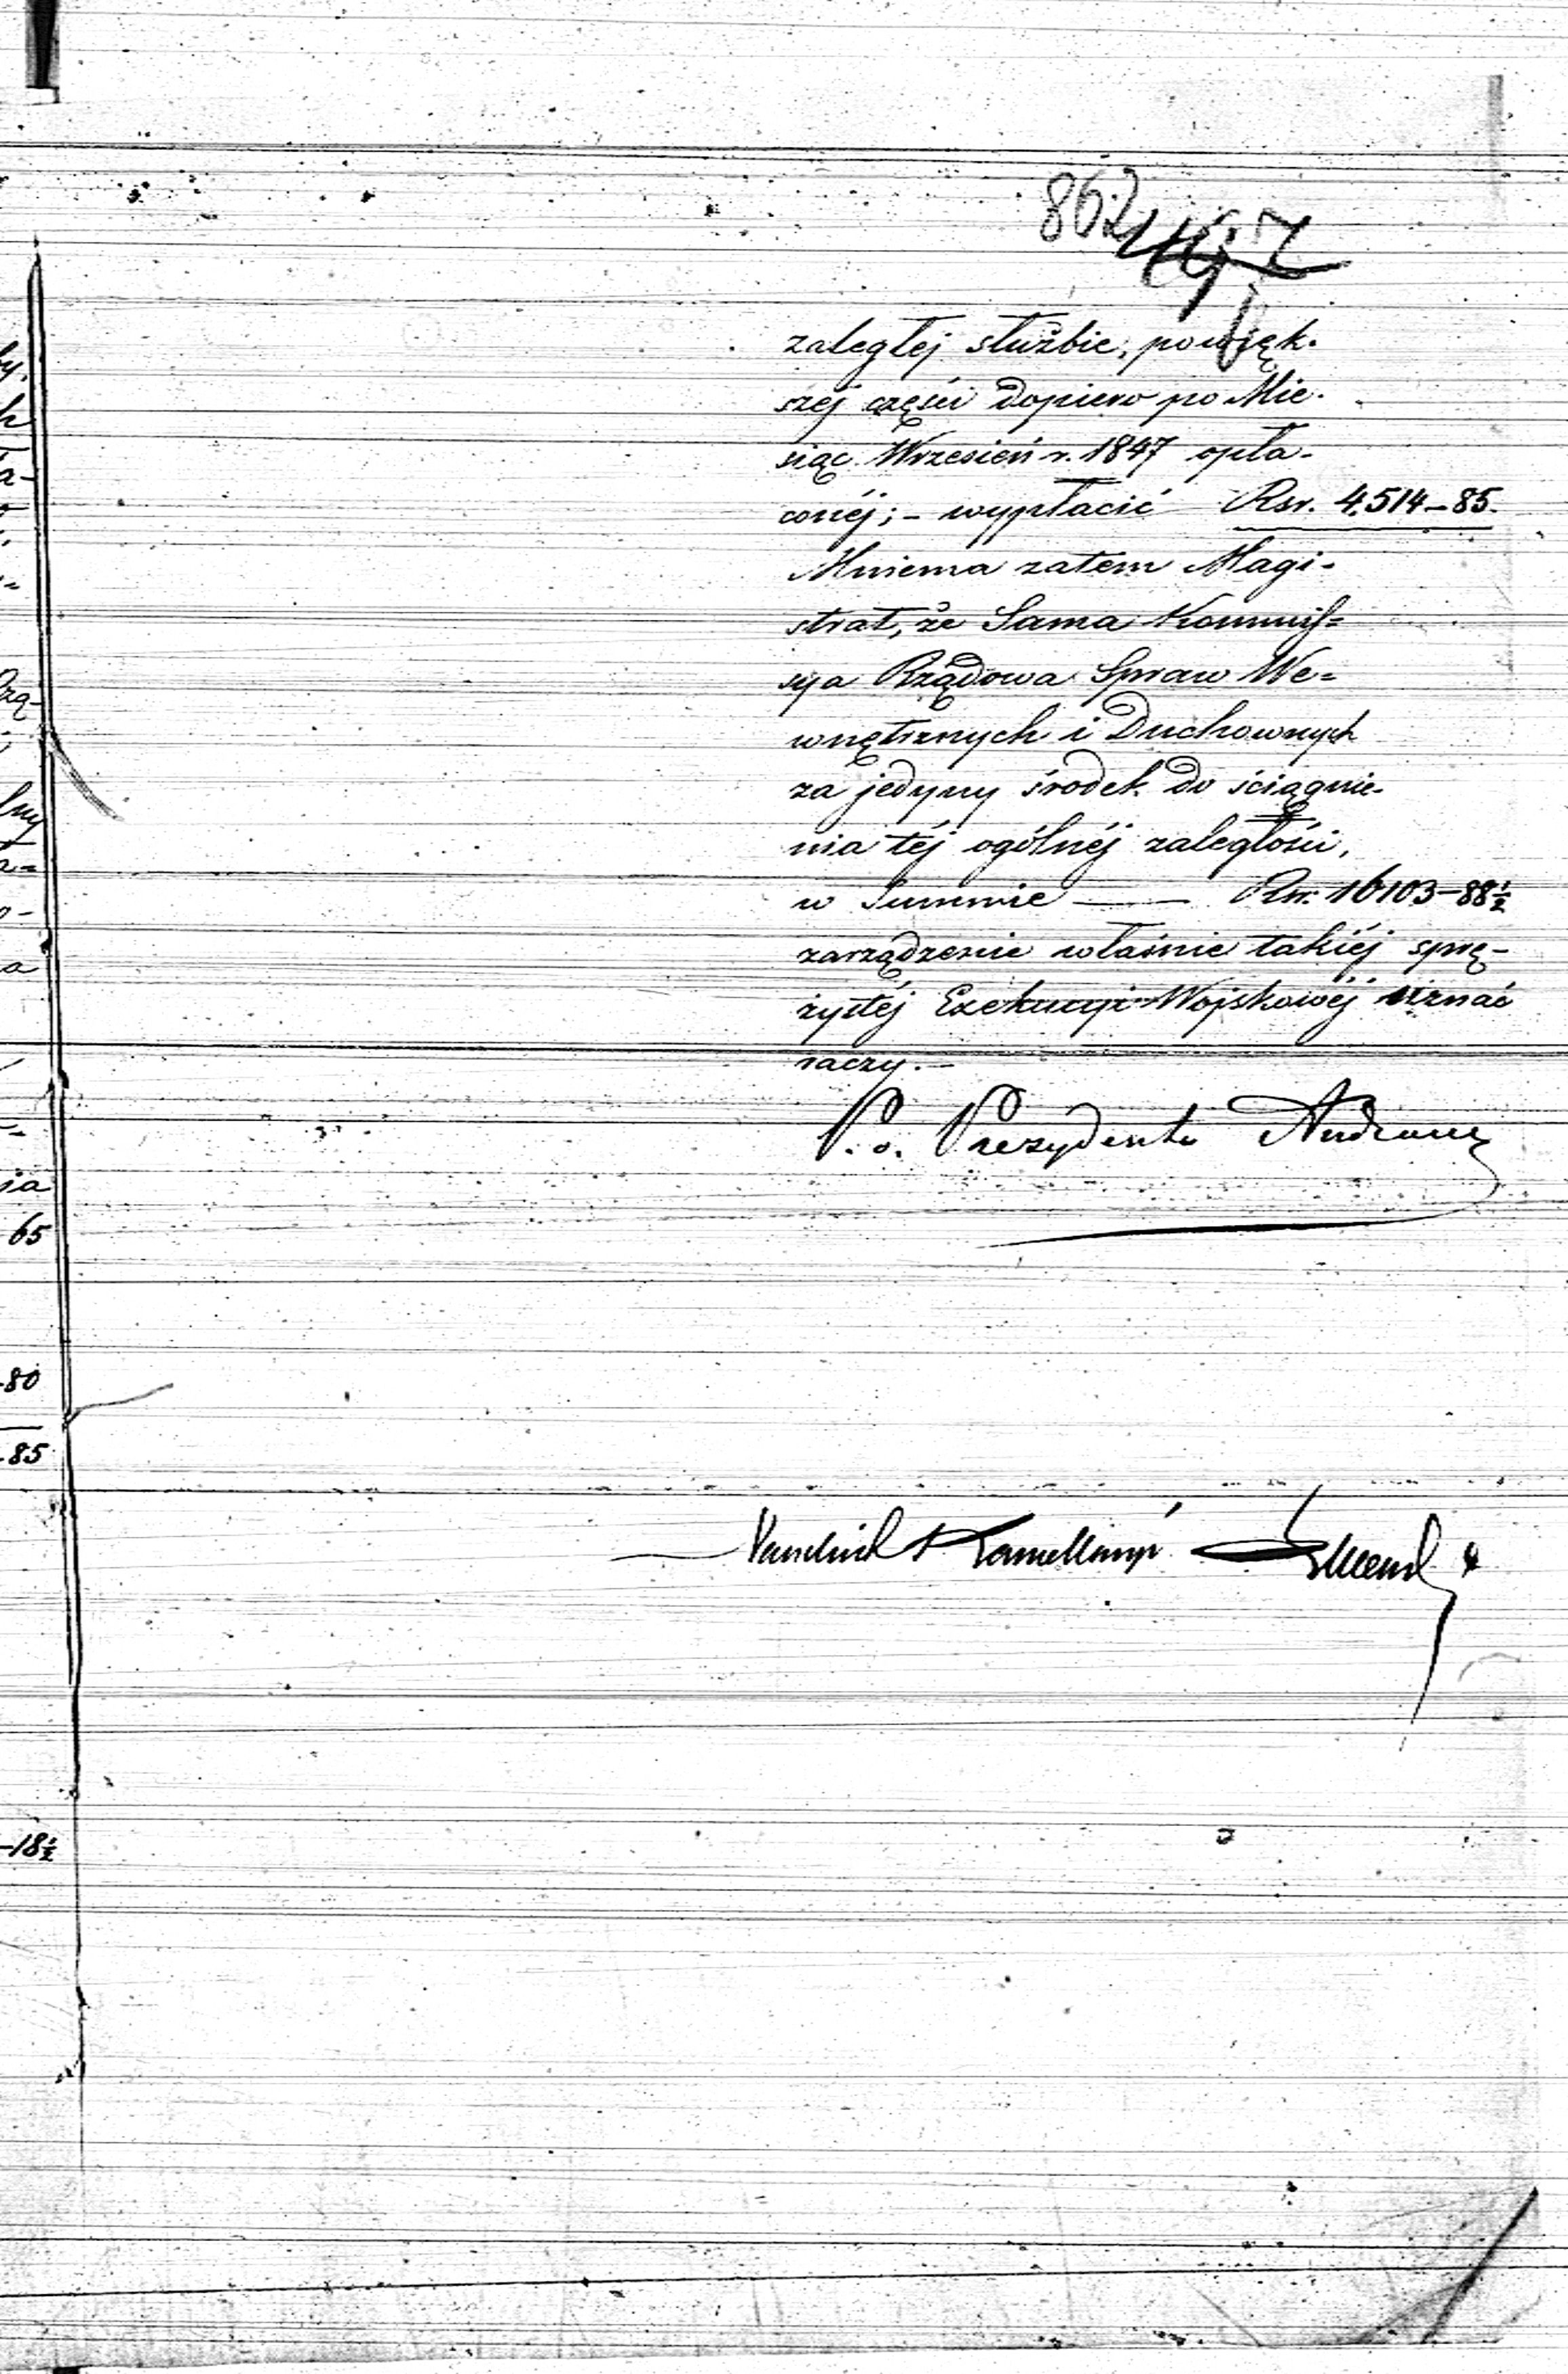 862
zaległej służbie, powięk-
szej części dopiero po Mie-
siąc Wrzesień r. 1847 opła-
conéj; – wypłacić Rsr. 4514–85.
Mniema zatem Magi-
strat, że Sama Kommis-
sya Rządowa Spraw We-
wnętrznych i Duchownych
za jedyny środek do ściągnie-
nia téj ogólnéj zaległości,
w Summie —— Rsr. 16103–88½
zarządzenie właśnie takiéj sprę-
żystéj Exekucyi Wojskowéj uznać
raczy. –
P. o. Prezydenta
65
80
85
18½